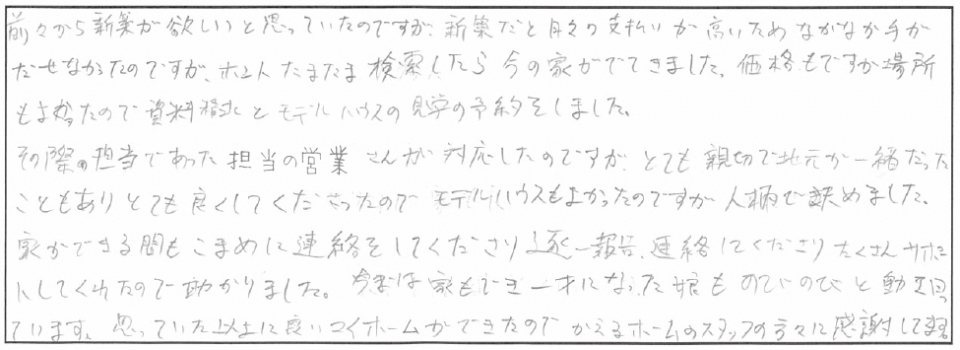 前々から新築が欲しいと思っていたのですが、新築だと月々の支払いが高いためなかなか手が
だせなかったのですが、ホントたまたま検索したら今の家がでてきました。価格もですが場所
もよかったので資料請求とモデルハウスの見学の予約をしました。
その際、担当であった担当の営業さんが対応したのですが、とても親切で地元が一緒だった
こともありとても良くしてくださったのでモデルハウスもよかったのですが人柄で決めました。
家ができる間もこまめに連絡をしてくださり逐一報告、連絡してくださりたくさんサポー
トしてくれたので助かりました。今では家もでき一才になった娘ものびのびと動き回っ
ています。思っていた以上に良いマイホームができたのでかえるホームのスタッフの方々に感謝してます